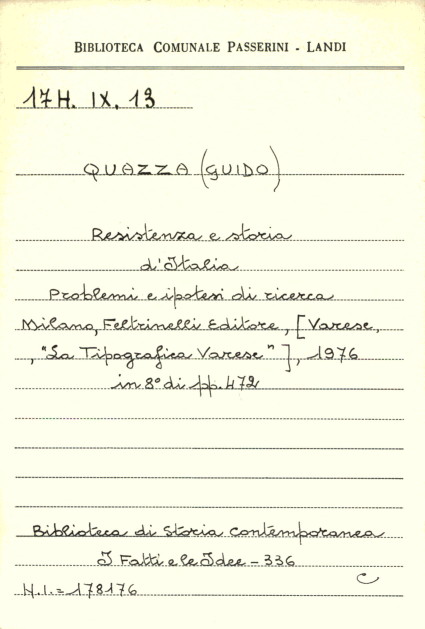 BIBLIOTECA COMUNALE PASSERINI - LANDI
17H. IX. 13
QUAZZA (GUIDO)
Resistenza e storia
d'Italia
Problemi e ipotesi di ricerca
Milano, Feltrinelli Editore, [Varese,
, "La Tipografica Varese"], 1976
in 8° di pp. 472
Biblioteca di Storia Contemporanea
I Fatti e le Idee - 336
C
N.I. = 178176